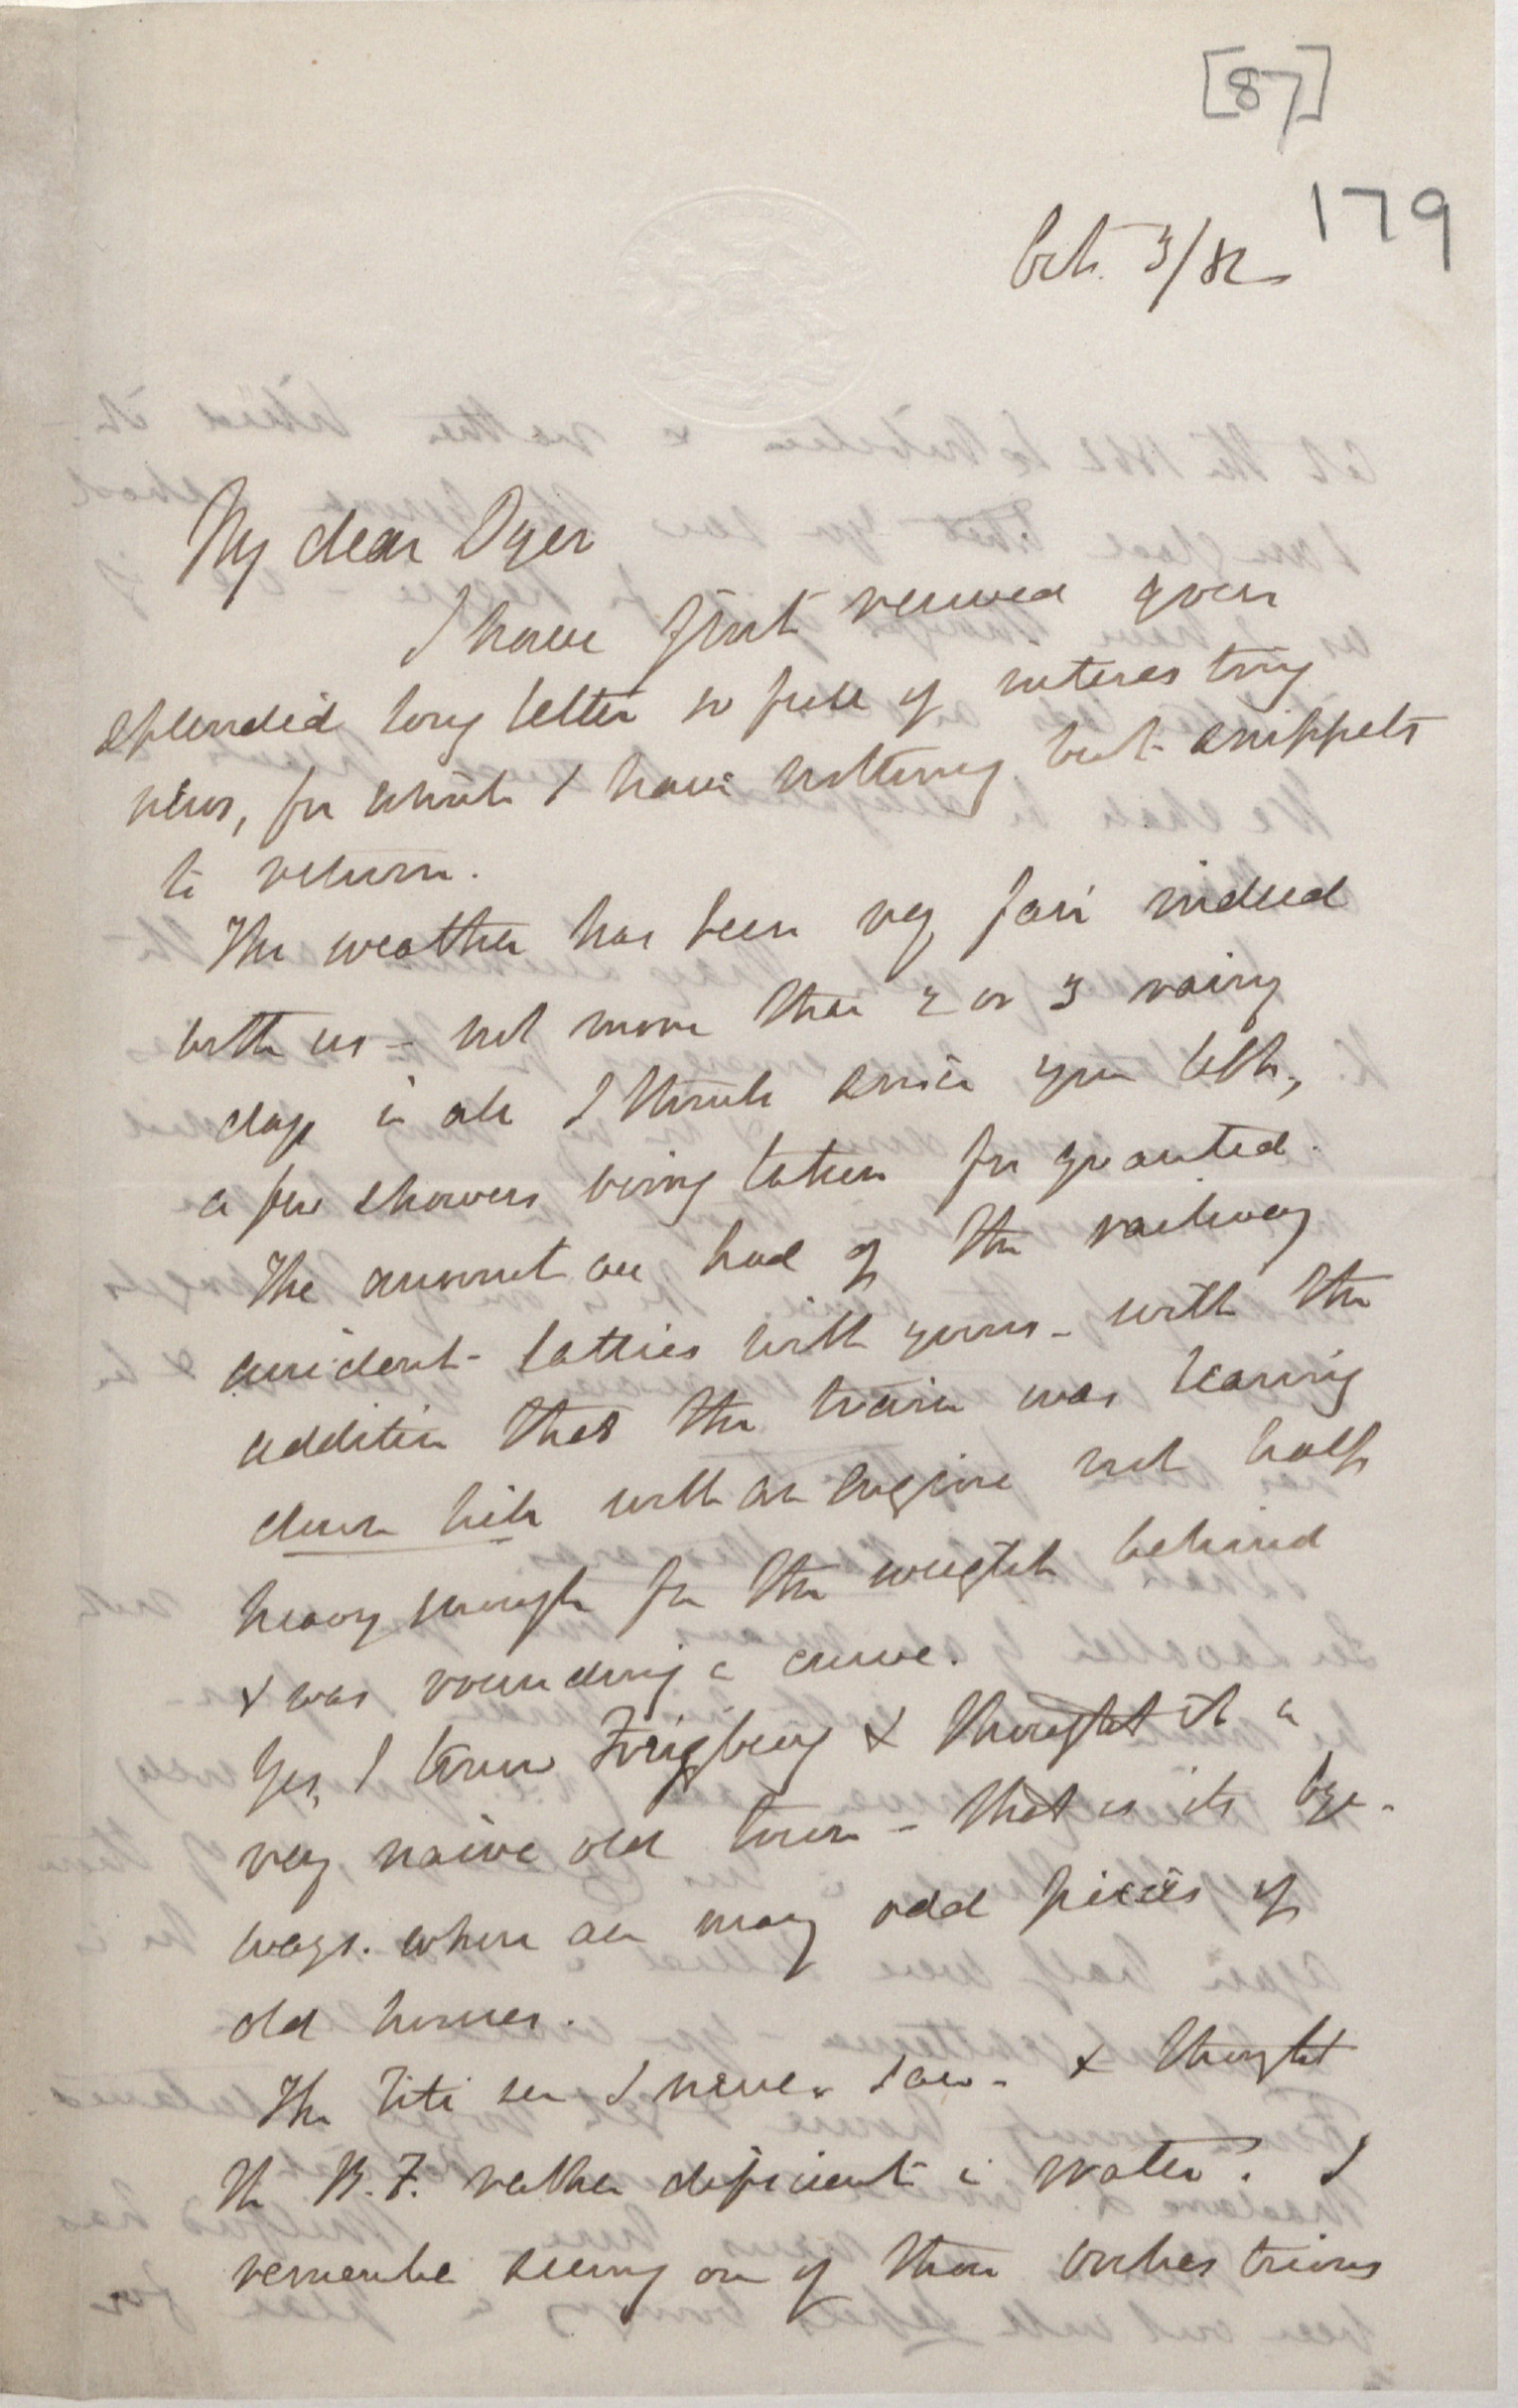 [87]
179
Oct. 3/82
My dear Dyer
I have first received your
splendid long letter so full of interesting
news, for which I have nothing but snippets
to return.
The weather has been very fair indeed
with us - not more than 2 or 3 rainy
days in all I think since you left,
a few showers being taken for granted.
The account we had of the railway
accident tallies with yours - with the
addition that the train was tearing
down hill with an engine not half
heavy enough for the weight behind
& was rounding a curve.
Yes, I know Freiburg & thought it a
very naive old town - that is its bye-
ways. where are many odd pieces of
old houses.
The Titi see I never saw - & thought
the B.F. rather deficient in water. I
remember seeing one of those orchestrions